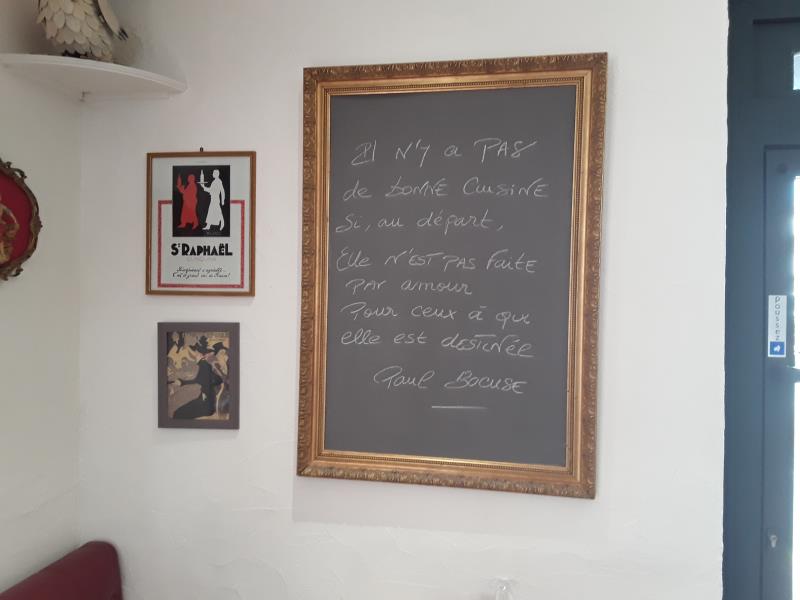 Il N'y a PAS
de bonne Cuisine
Si, au départ,
Elle N'EST PAS Faite
par amour
Pour ceux à qui
elle est DESTINÉE
Paul BOCUSE
St RAPHAËL
QUINQUINA
poussez